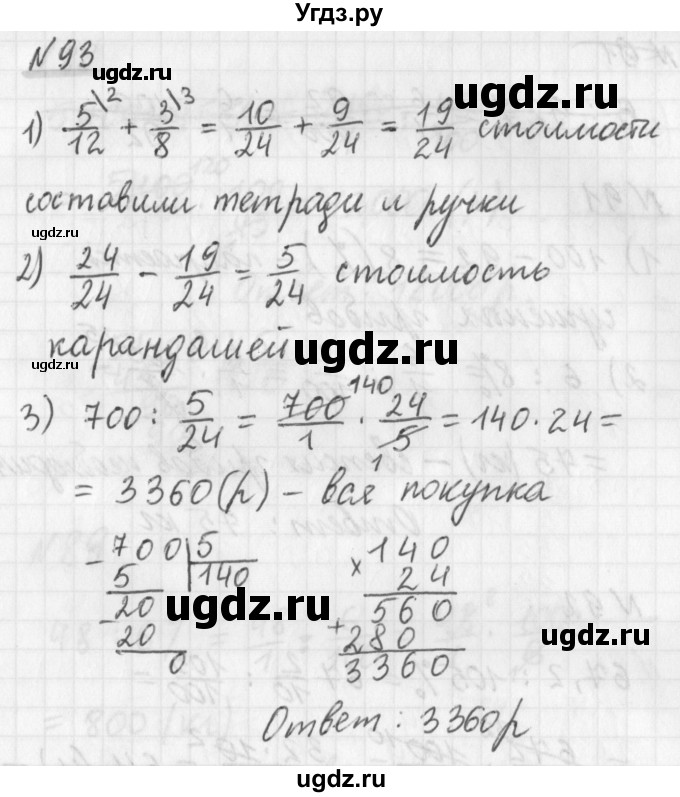 Угдз.ру
N93
ugdz.ru
1) 5/12 \2 + 3/8 \3 = 10/24 + 9/24 = 19/24 стоимости
ugdz.ru
составили тетради и ручки
ugdz.ru
2) 24/24 - 19/24 = 5/24 стоимость
карандашей
ugdz.ru
ugdz.ru
3) 700 : 5/24 = 700/1 · 24/5 = 140·24 =
140
1
= 3360(р) – вся покупка
- 700 | 5
5 | 140
- 20
20
0
ugdz.ru
× 140
24
+ 560
280
3360
ugdz.ru
Ответ: 3360р
ugdz.ru